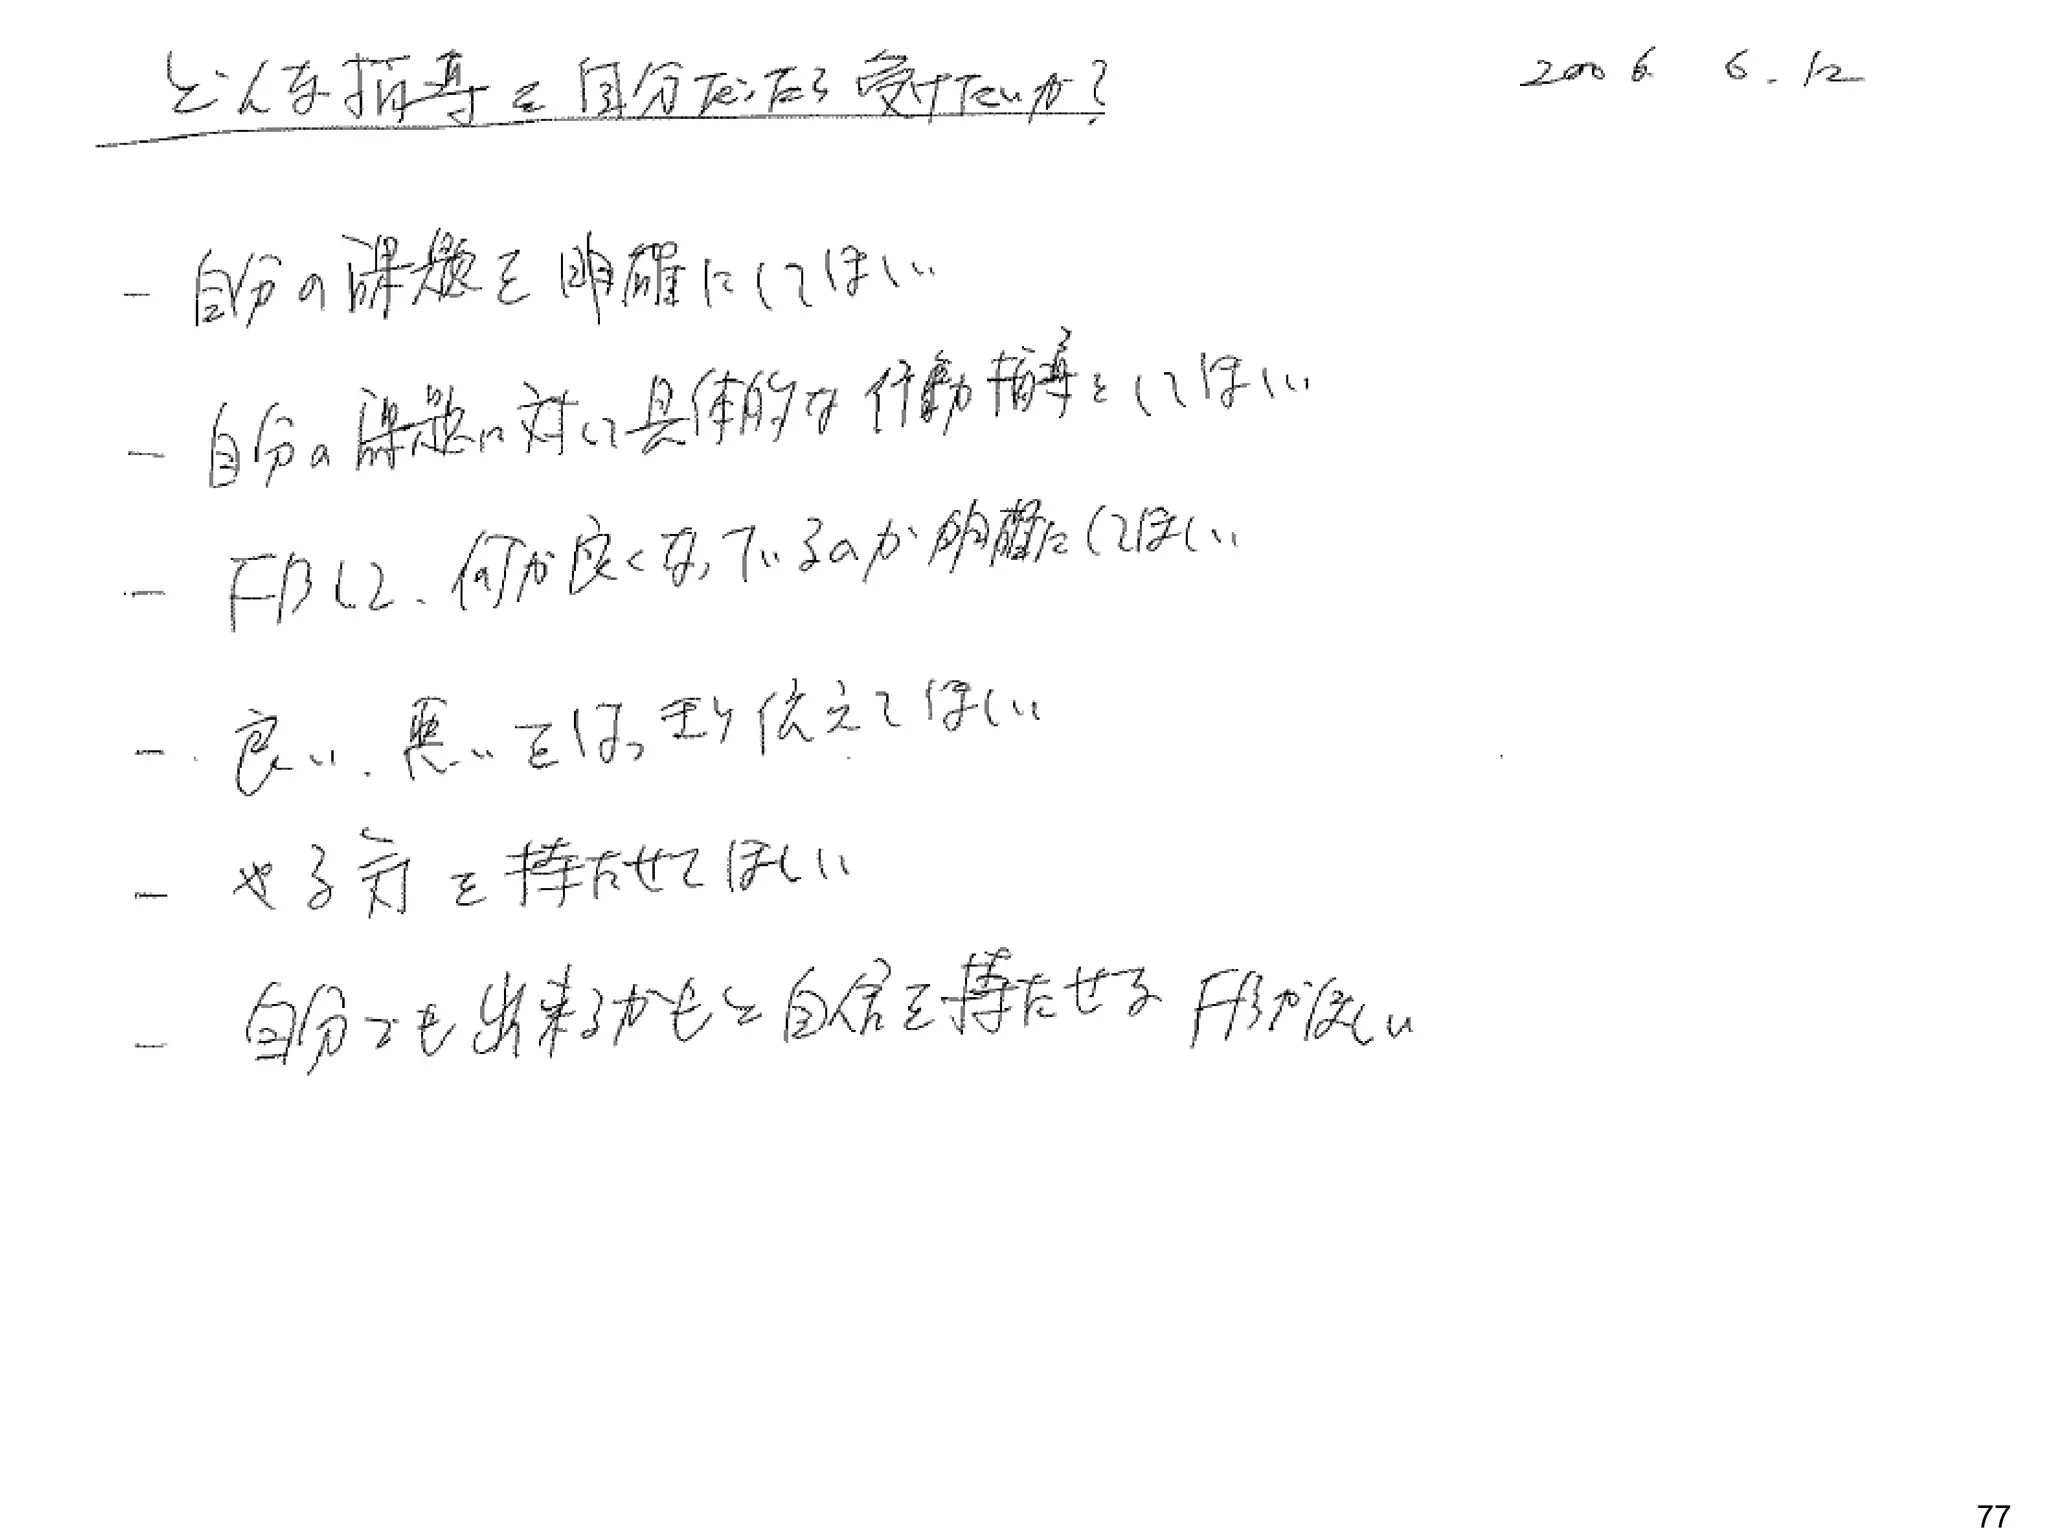 どんな指導を自分だったら受けたいか?
2006 6.12
- 自分の課題を明確にしてほしい
- 自分の課題に対して具体的な行動指導をしてほしい
- FBして、何が良くなっているのか明確にしてほしい
- 良い、悪いをはっきり伝えてほしい
- やる気を持たせてほしい
- 自分でも出来るかもと自信を持たせるFBがほしい
77